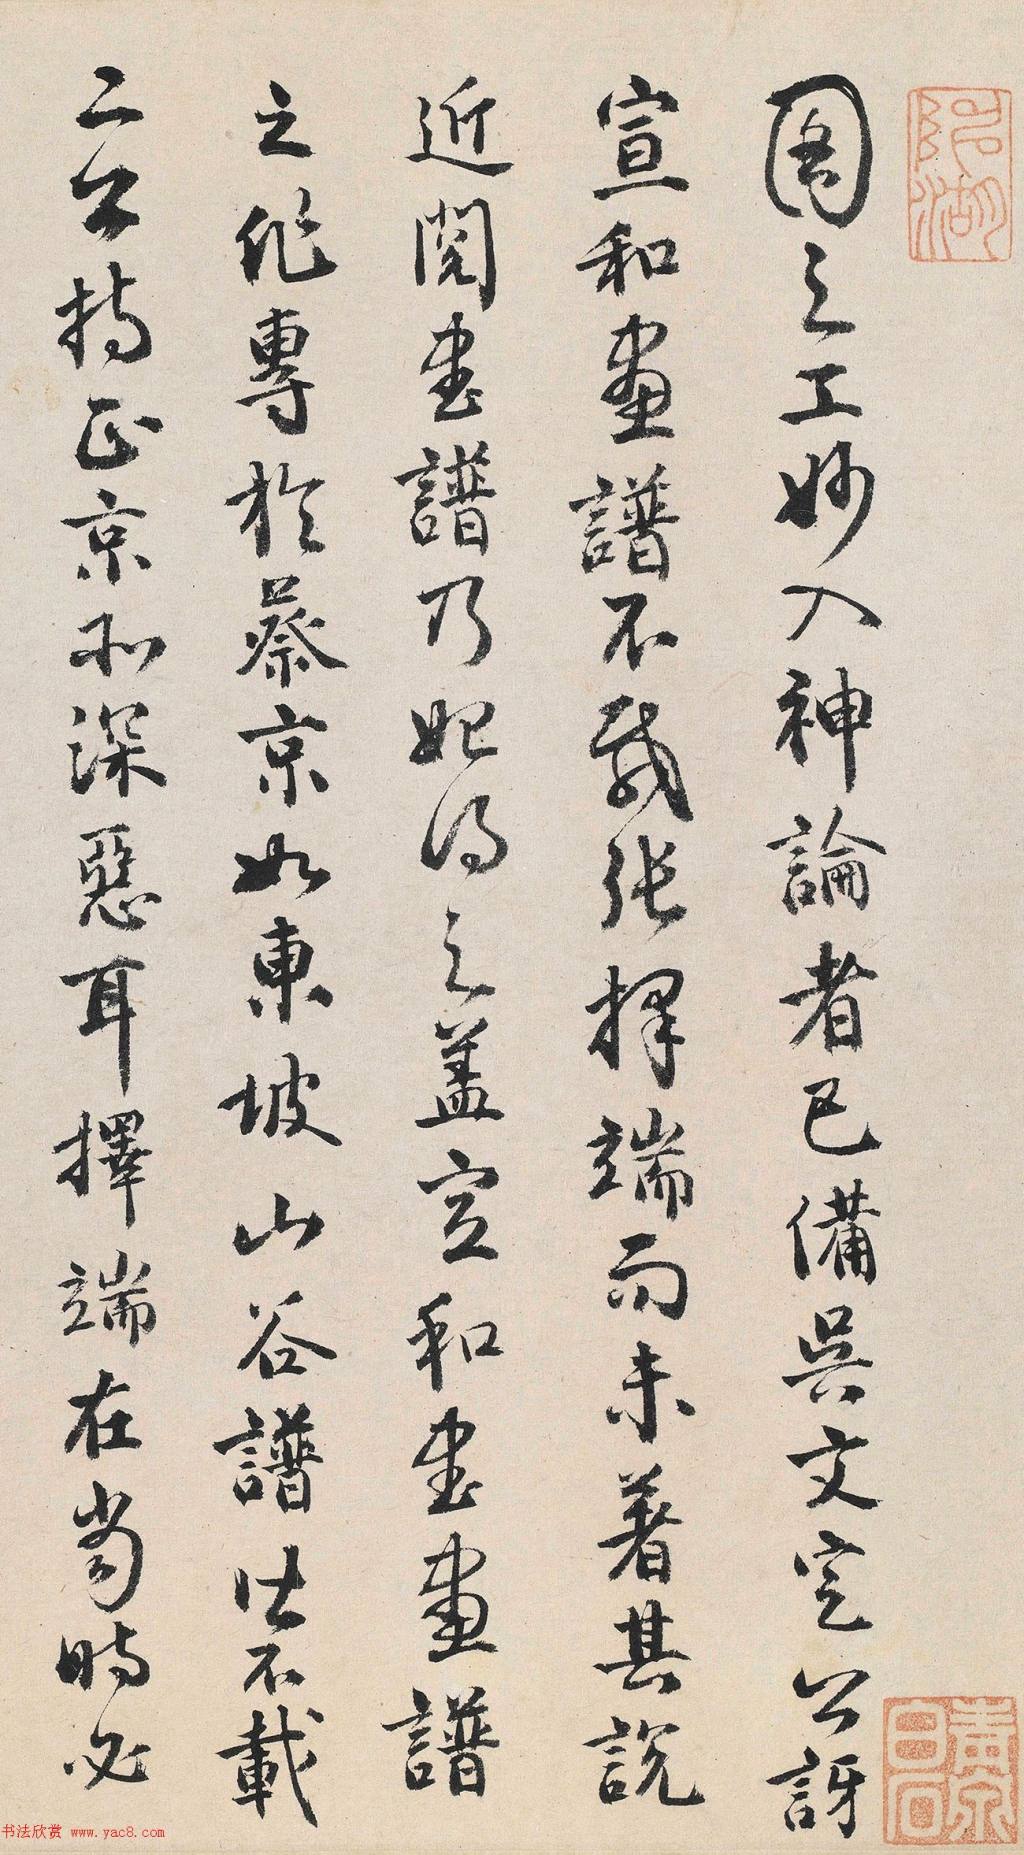 圖之工妙入神論者已備吳文定公訝
宣和畫譜不載張擇端而未著其說
近閱書譜乃始得之蓋宣和書畫譜
之作專於蔡京如東坡山谷譜皆不載
二公持正京所深惡耳擇端在當時必
書法欣赏 www.yac8.com